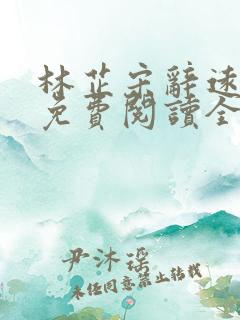 林芷宋辭遠
免費閱讀全
尹沐瑶
未经同意禁止转载